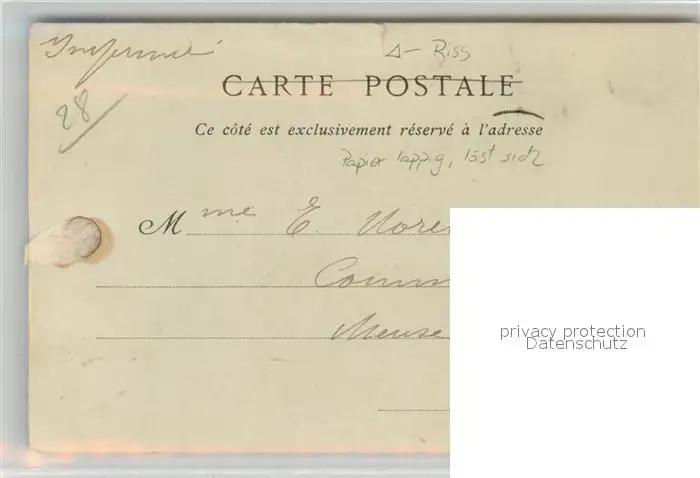 Imprimé
△ - Riss
CARTE POSTALE
28
Ce côté est exclusivement réservé à l'adresse
Papier lappig, löst sich
Mme E.
Meuse
privacy protection
Datenschutz